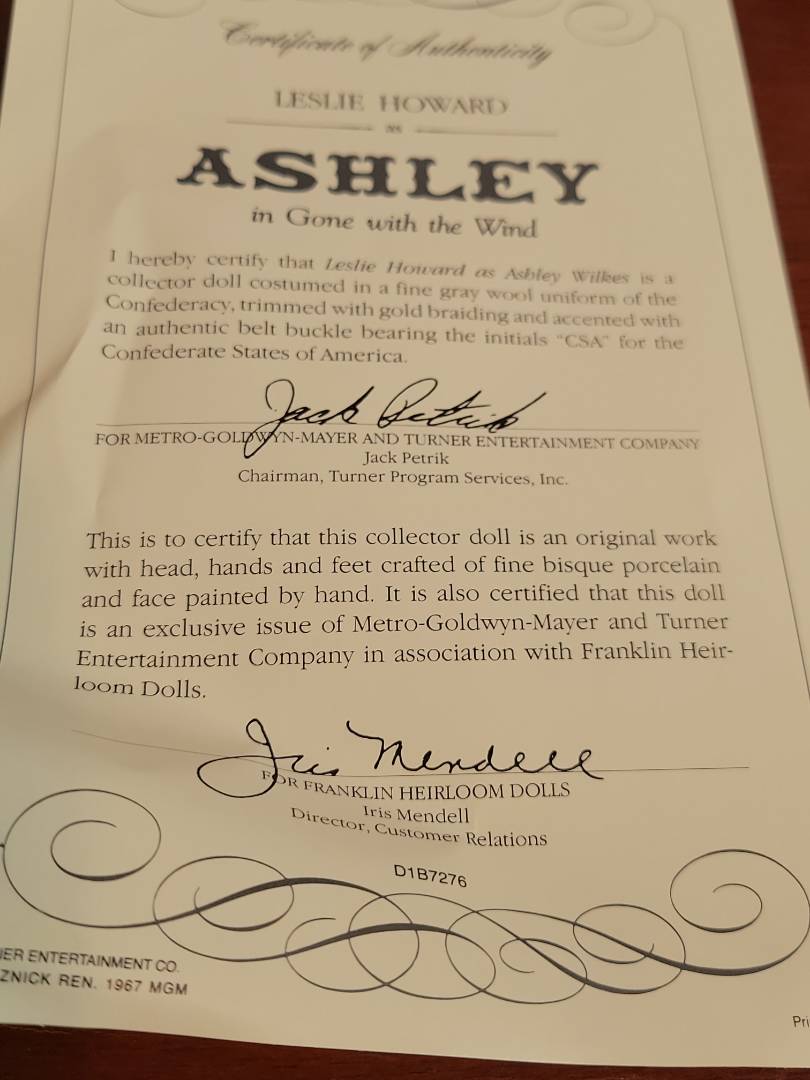 Certificate of Authenticity
LESLIE HOWARD
as
ASHLEY
in Gone with the Wind
I hereby certify that Leslie Howard as Ashley Wilkes is a
collector doll costumed in a fine gray wool uniform of the
Confederacy, trimmed with gold braiding and accented with
an authentic belt buckle bearing the initials "CSA" for the
Confederate States of America.
Jack Petrik
FOR METRO-GOLDWYN-MAYER AND TURNER ENTERTAINMENT COMPANY
Jack Petrik
Chairman, Turner Program Services, Inc.
This is to certify that this collector doll is an original work
with head, hands and feet crafted of fine bisque porcelain
and face painted by hand. It is also certified that this doll
is an exclusive issue of Metro-Goldwyn-Mayer and Turner
Entertainment Company in association with Franklin Heir-
loom Dolls.
Iris Mendell
FOR FRANKLIN HEIRLOOM DOLLS
Iris Mendell
Director, Customer Relations
D1B7276
ER ENTERTAINMENT CO.
ZNICK REN. 1967 MGM
Pri